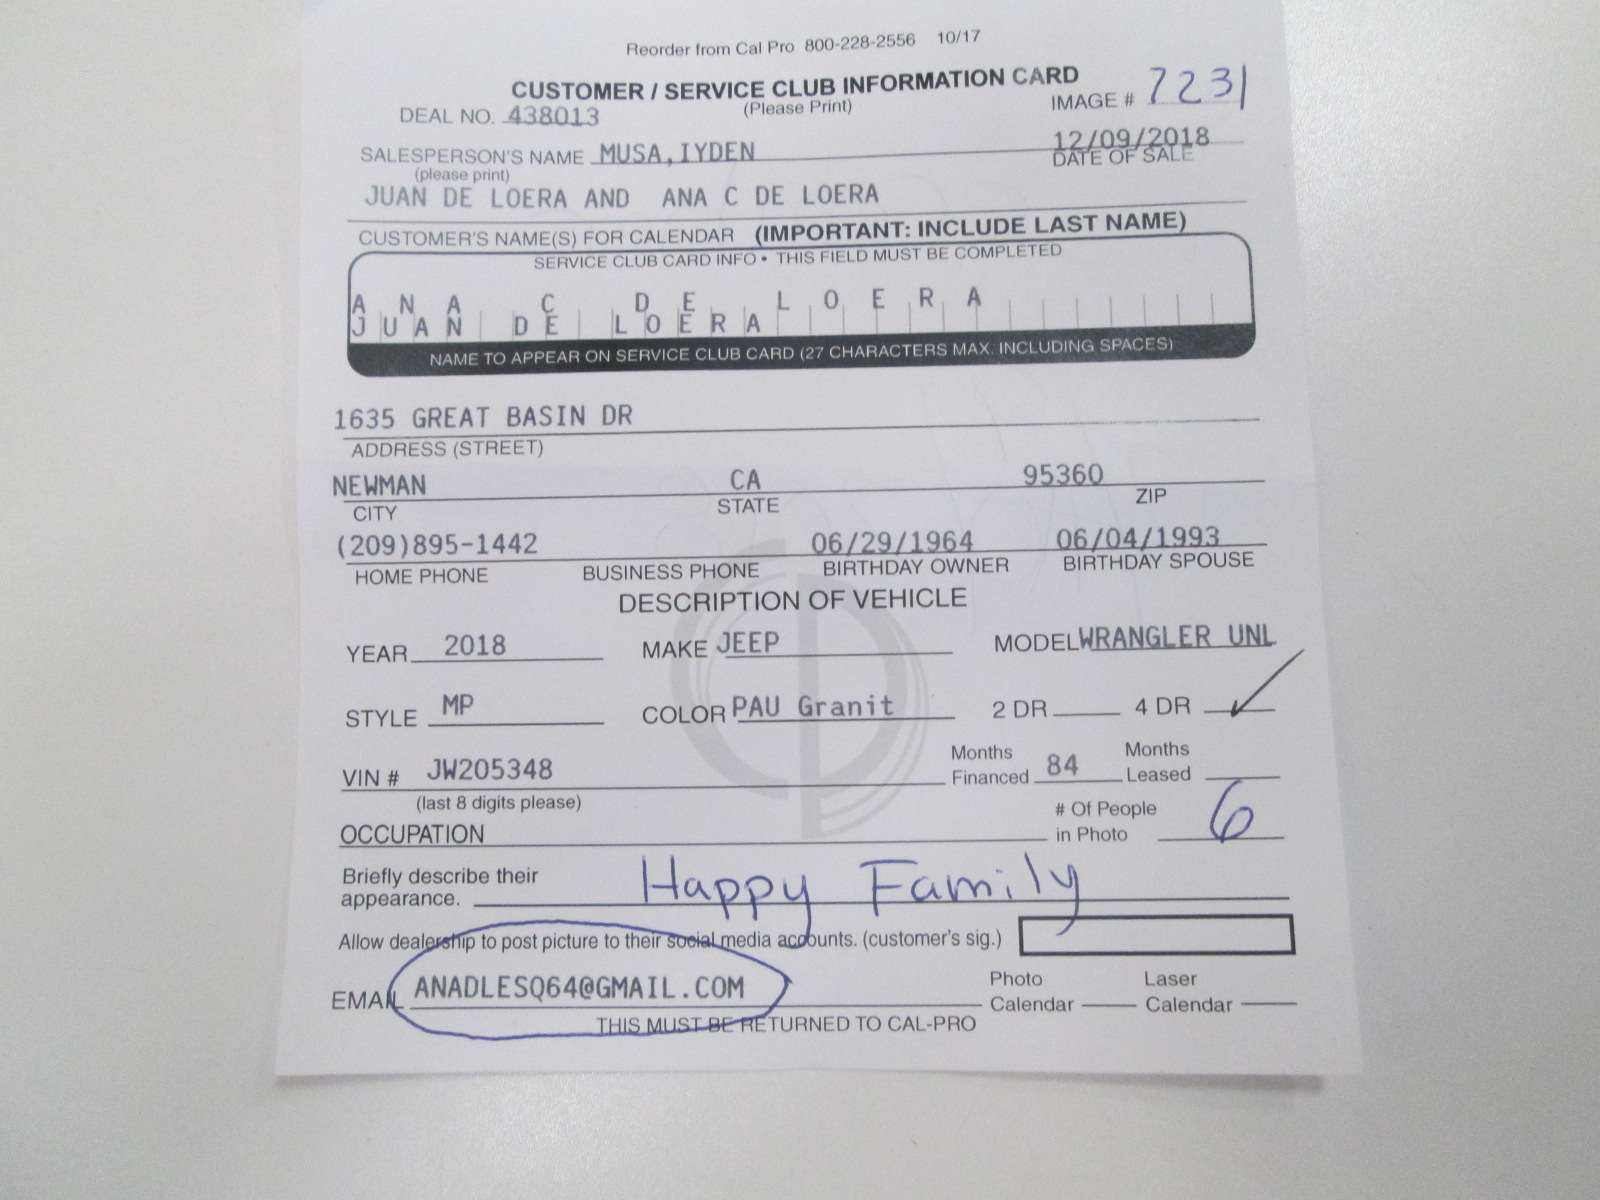 Reorder from Cal Pro 800-228-2556 10/17
CUSTOMER / SERVICE CLUB INFORMATION CARD
(Please Print)
DEAL NO. 438013
IMAGE # 7231
SALESPERSON'S NAME MUSA,IYDEN
(please print)
12/09/2018
DATE OF SALE
JUAN DE LOERA AND ANA C DE LOERA
CUSTOMER'S NAME(S) FOR CALENDAR (IMPORTANT: INCLUDE LAST NAME)
SERVICE CLUB CARD INFO • THIS FIELD MUST BE COMPLETED
ANA C DE LOERA
JUAN DE LOERA
NAME TO APPEAR ON SERVICE CLUB CARD (27 CHARACTERS MAX. INCLUDING SPACES)
1635 GREAT BASIN DR
ADDRESS (STREET)
NEWMAN CA 95360
CITY STATE ZIP
(209)895-1442 06/29/1964 06/04/1993
HOME PHONE BUSINESS PHONE BIRTHDAY OWNER BIRTHDAY SPOUSE
DESCRIPTION OF VEHICLE
YEAR 2018 MAKE JEEP MODEL WRANGLER UNL
STYLE MP COLOR PAU Granit 2 DR 4 DR
VIN # JW205348
(last 8 digits please)
Months Financed 84
Months Leased
OCCUPATION
# Of People in Photo 6
Briefly describe their
appearance. Happy Family
Allow dealership to post picture to their social media accounts. (customer's sig.)
EMAIL ANADLESQ64@GMAIL.COM
Photo Calendar
Laser Calendar
THIS MUST BE RETURNED TO CAL-PRO